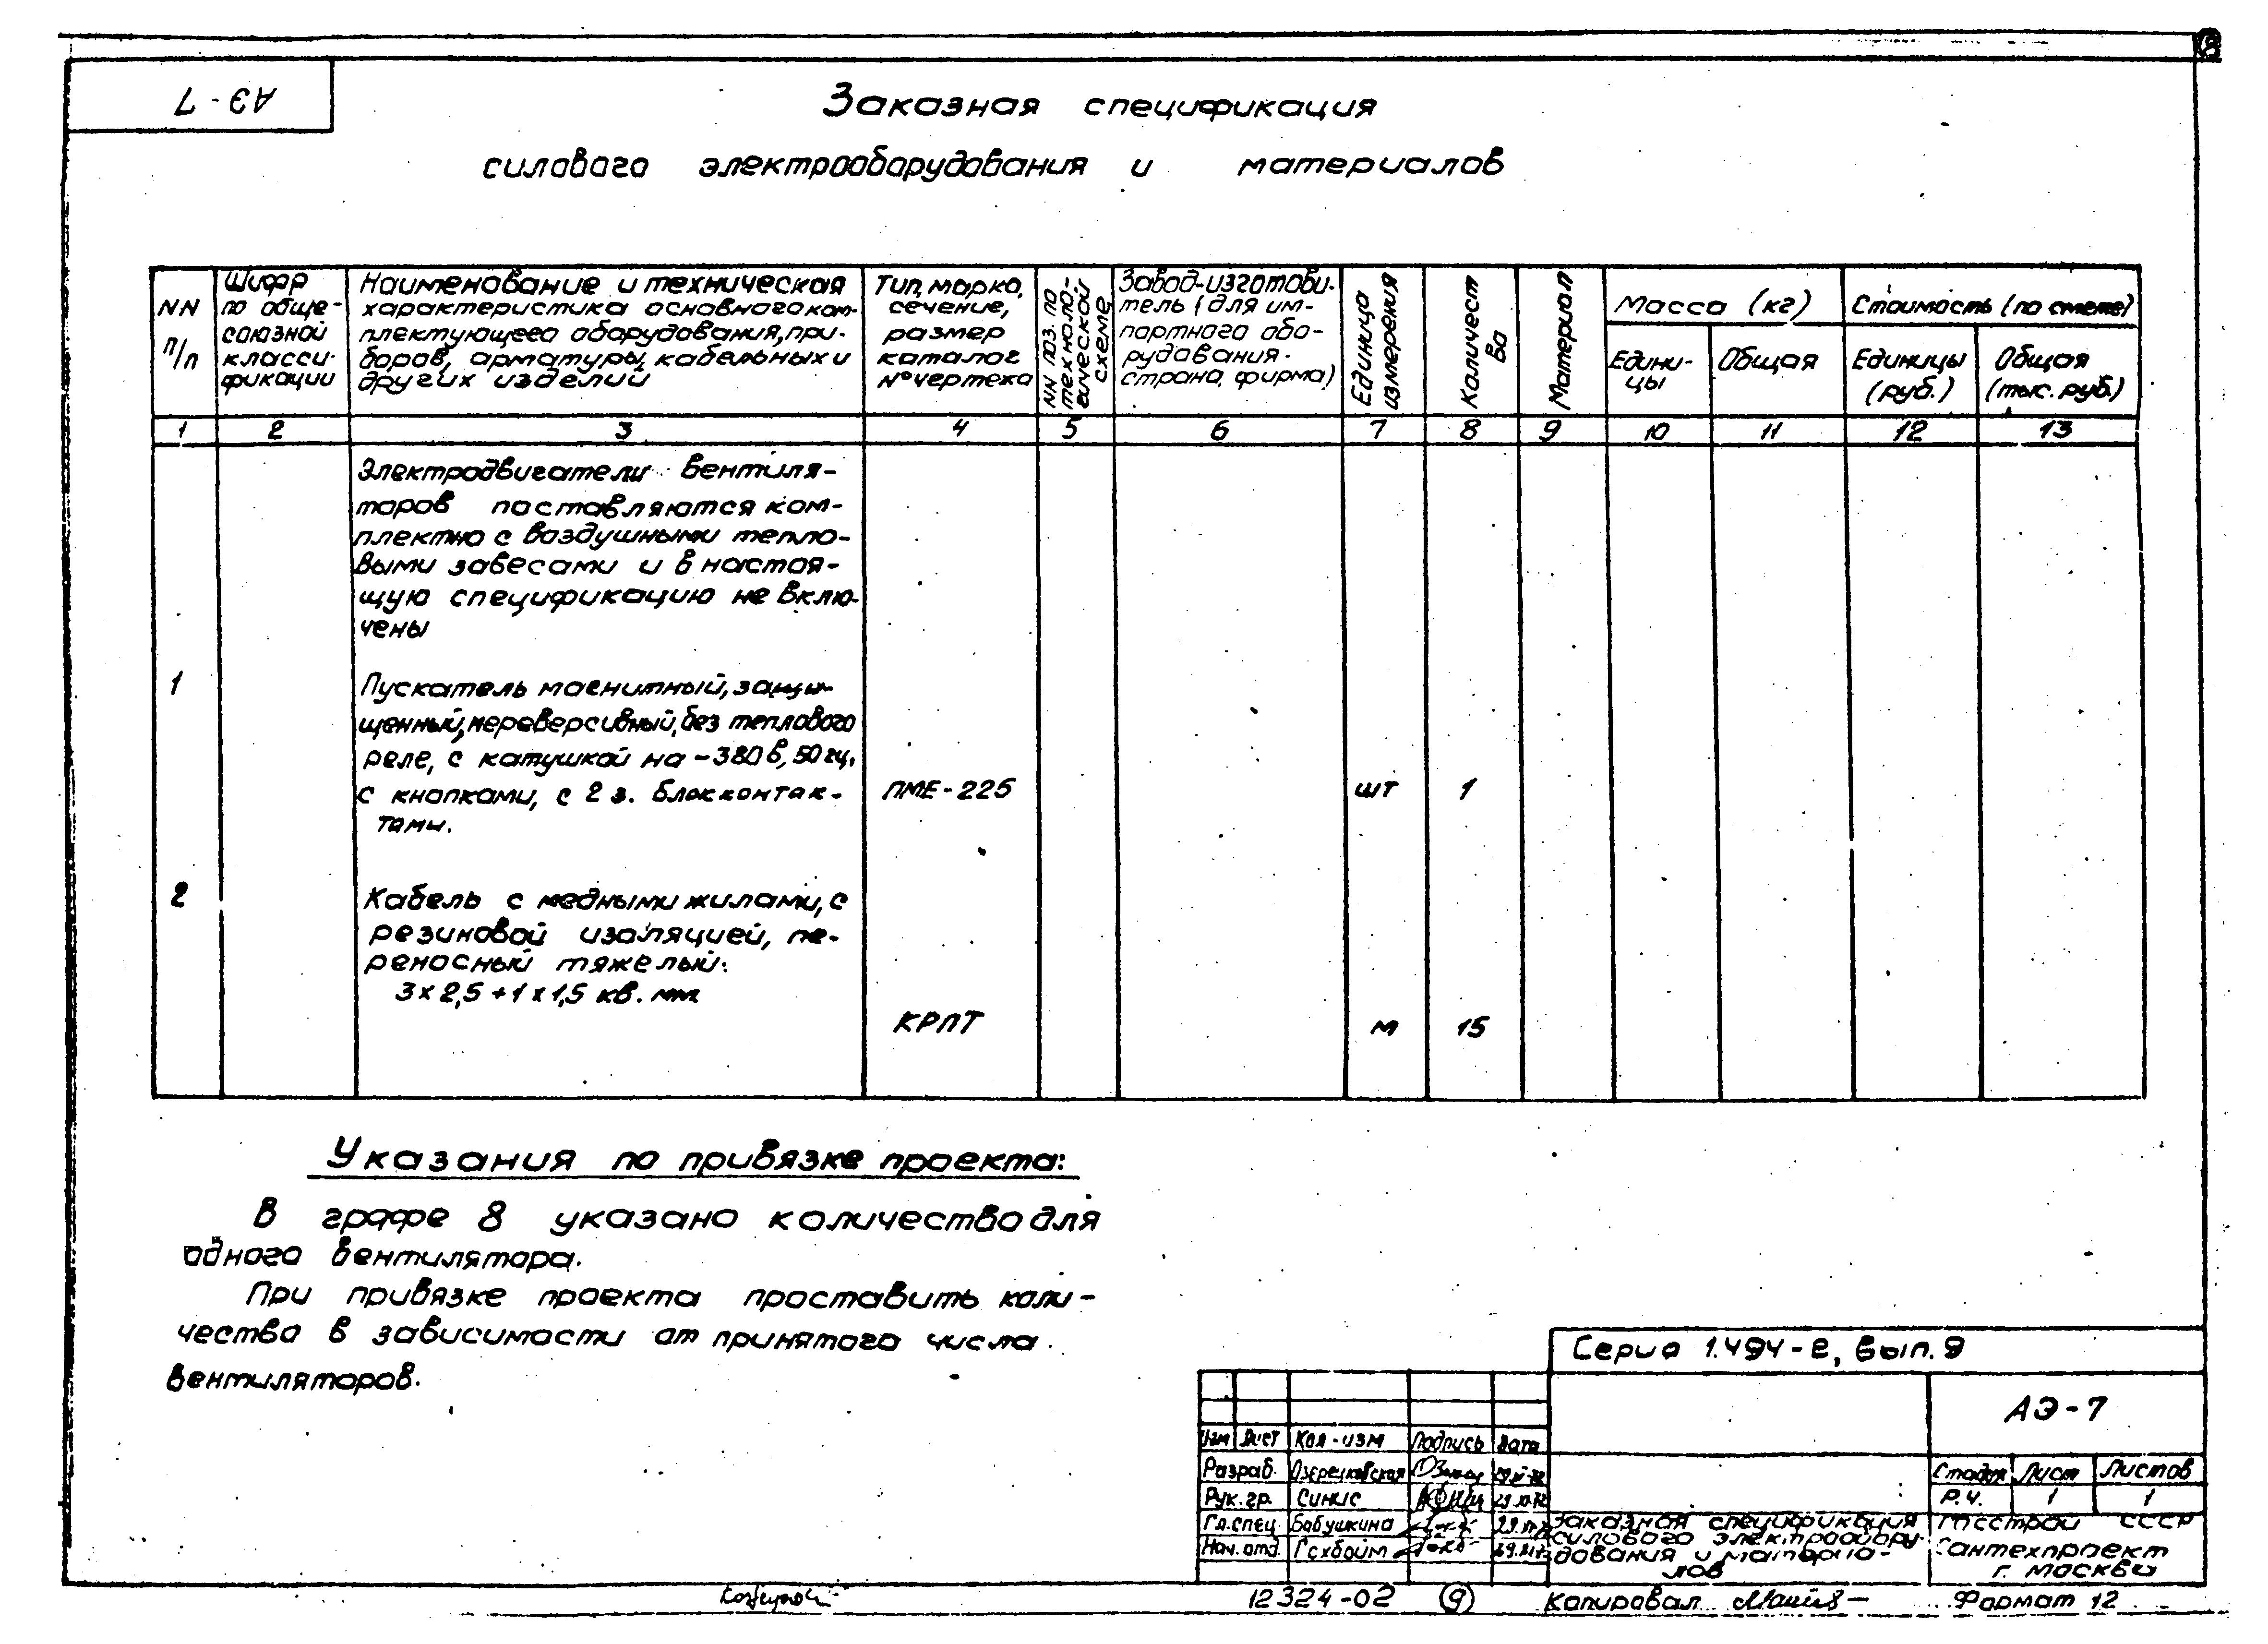 8
АЭ-7
Заказная спецификация
силового электрооборудования и материалов
NN п/п
Шифр по обще-союзной класси-фикации
Наименование и техническая
характеристика основного ком-
плектующего оборудования, при-
боров, арматуры, кабельных и
других изделий
Тип, марка,
сечение,
размер
каталог
N° чертежа
NN поз. по
техноло-
гической
схеме
Завод-изготови-
тель (для им-
портного обо-
рудования-
страна, фирма)
Единица
измерения
Количест
во
Материал
Масса (кг)
Едини-
цы
Общая
Стоимость (по смете)
Единицы
(руб.)
Общая
(тыс. руб.)
1 2 3 4 5 6 7 8 9 10 11 12 13
Электродвигатели вентиля-
торов поставляются ком-
плектно с воздушными тепло-
выми завесами и в настоя-
щую спецификацию не вклю-
чены
1 Пускатель магнитный, защи-
щенный, нереверсивный, без теплового
реле, с катушкой на ~380в, 50гц,
с кнопками, с 2 з. блокконтак- ПМЕ-225 шт 1
тами.
2 Кабель с медными жилами, с
резиновой изоляцией, пе-
реносный тяжелый:
3х2,5+1х1,5 кв. мм
КРПТ м 15
Указания по привязке проекта:
В графе 8 указано количество для
одного вентилятора.
При привязке проекта проставить коли-
чества в зависимости от принятого числа
вентиляторов.
Серия 1.494-2, вып. 9
АЭ-7
Изм Лист Кол-изм Подпись Дата
Разраб.
Рук. гр. Синис
Гл. спец. Бабушкина
Нач. отд.
Стадия Лист Листов
Р.Ч. 1 1
Заказная спецификация
силового электрообору-
дования и материа-
лов
Госстрой СССР
Сантехпроект
г. Москва
12324-02 9 Копировал Формат 12